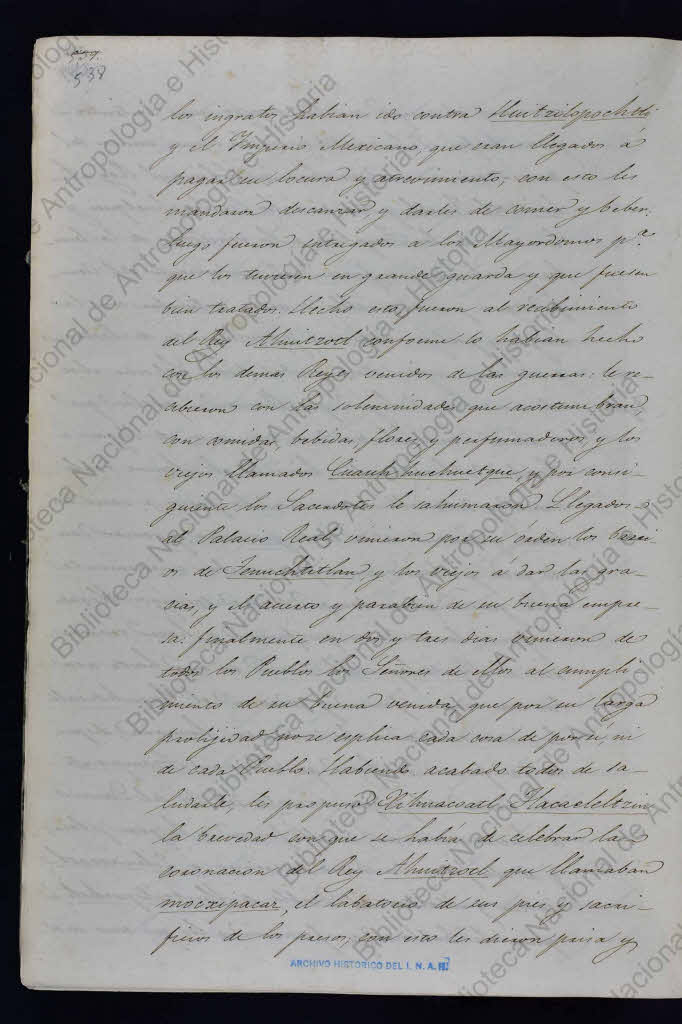 538
los ingratos habian ido contra Huitzilopochtli
y el Imperio Mexicano, que eran llegados á
pagar su locura y atrevimiento; con esto les
mandaron descanzar y darles de comer y beber.
Luego fueron entregados á los Mayordomos pª.
que los tuviesen en grande guarda y que fuesen
bien tratados. Hecho esto fueron al recibimiento
del Rey Ahuitzotl conforme lo habian hecho
con los demas Reyes venidos de las guerras: le re-
cibieron con las solemnidades que acostumbran,
con comidas, bebidas, flores, y perfumaderos, y los
viejos llamados Cuauh-huehuetque, y por consi-
guiente los Sacerdotes le sahumaron. Llegados
al Palacio Real, vinieron por su órden los barri-
os de Tenuchtitlan, y los viejos á dar las gra-
cias, y el acierto y parabien de su buena empre-
sa: finalmente en dos y tres dias vinieron de
todos los Pueblos los Señores de ellos al cumpli
miento de su buena venida, que por su larga
prolijidad no se esplica cada cosa de por si, ni
de cada Pueblo. Habiendo acabado todos de sa-
ludarle, les propuso Zihuacoatl Tlacaeleltzin
la brevedad con que se habia de celebrar la
coronacion del Rey Ahuitzotl que llamaban
mocxipacac, el labatorio de sus pies, y sacri-
ficios de los presos; con esto les dieron prisa y
ARCHIVO HISTORICO DEL I. N. A. H.
Biblioteca Nacional de Antropología e Historia